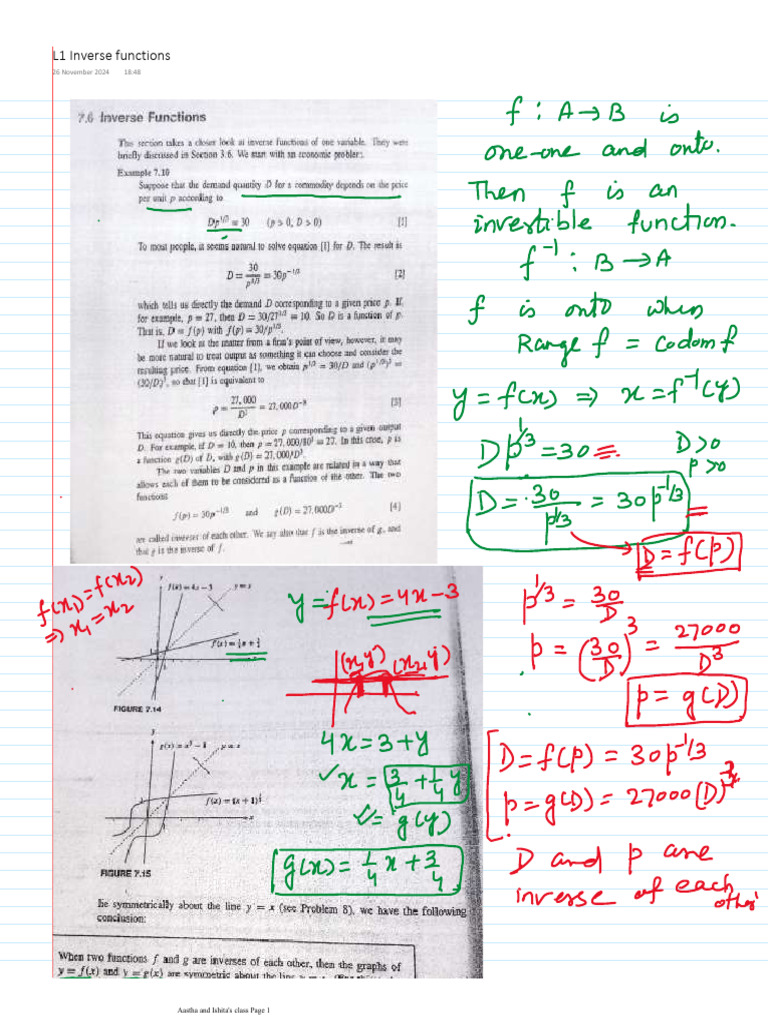 L1 Inverse functions
26 November 2024 18:48
7.6 Inverse Functions
This section takes a closer look at inverse functions of one variable. They were
briefly discussed in Section 3.6. We start with an economic problem.
Example 7.10
Suppose that the demand quantity D for a commodity depends on the price
per unit p according to
Dp^1/3 = 30 (p > 0, D > 0) [1]
To most people, it seems natural to solve equation [1] for D. The result is
D = 30/p^1/3 = 30p^-1/3 [2]
which tells us directly the demand D corresponding to a given price p. If,
for example, p = 27, then D = 30/27^1/3 = 10. So D is a function of p.
That is, D = f(p) with f(p) = 30/p^1/3.
If we look at the matter from a firm's point of view, however, it may
be more natural to treat output as something it can choose and consider the
resulting price. From equation [1], we obtain p^1/3 = 30/D and (p^1/3)^3 =
(30/D)^3, so that [1] is equivalent to
p = 27,000/D^3 = 27,000D^-3 [3]
This equation gives us directly the price p corresponding to a given output
D. For example, if D = 10, then p = 27,000/10^3 = 27. In this case, p is
a function g(D) of D, with g(D) = 27,000/D^3.
The two variables D and p in this example are related in a way that
allows each of them to be considered as a function of the other. The two
functions
f(p) = 30p^-1/3 and g(D) = 27,000D^-3 [4]
are called inverses of each other. We say also that f is the inverse of g, and
that g is the inverse of f.
f : A → B is
one-one and onto.
Then f is an
invertible function.
f^-1 : B → A
f is onto when
Range f = codom f
y = f(x) ⇒ x = f^-1(y)
D p^1/3 = 30 D > 0
p > 0
D = 30/p^1/3 = 30p^-1/3
D = f(p)
p^1/3 = 30/D
p = (30/D)^3 = 27000/D^3
p = g(D)
D = f(p) = 30p^-1/3
p = g(D) = 27000(D)^-3
D and p are
inverse of each
other
f(x1) = f(x2)
⇒ x1 = x2
f(x) = 4x - 3 y = x
f(x) = ¼x + ¾
FIGURE 7.14
y = f(x) = 4x - 3
(x1,y) (x2,y)
4x = 3 + y
x = 3/4 + 1/4 y
= g(y)
g(x) = 1/4 x + 3/4
y = x
FIGURE 7.15
lie symmetrically about the line y = x (see Problem 8), we have the following
conclusion:
When two functions f and g are inverses of each other, then the graphs of
y = f(x) and y = g(x) are symmetric about the line
Aastha and Ishita's class Page 1